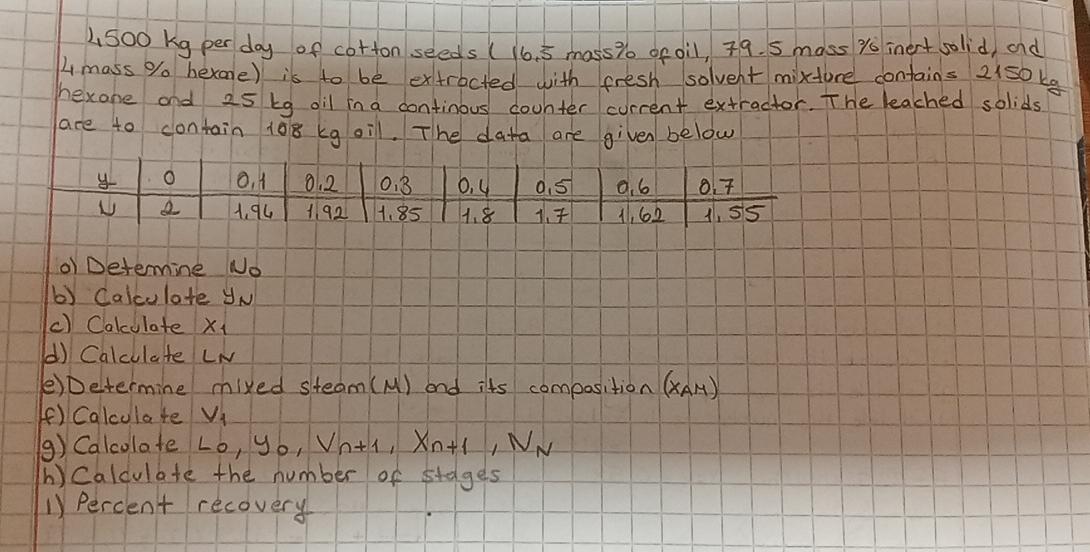 4500 kg per day of cotton seeds ( 16.5 mass% of oil, 79.5 mass % inert solid, and
4 mass % hexane) is to be extracted with fresh solvent mixture contains 2150 kg
hexane and 25 kg oil in a continous counter current extractor. The leached solids
are to contain 108 kg oil. The data are given below
y 0 0,1 0.2 0.3 0,4 0,5 0,6 0.7
N 2 1,94 1,92 1.85 1.8 1.7 1,62 1,55
a) Determine No
b) Calculate yN
c) Calculate x1
d) Calculate LN
e) Determine mixed steam (M) and its composition (XAM)
f) Calculate V1
g) Calculate Lo, yo, Vn+1, Xn+1, NN
h) Calculate the number of stages
i) Percent recovery